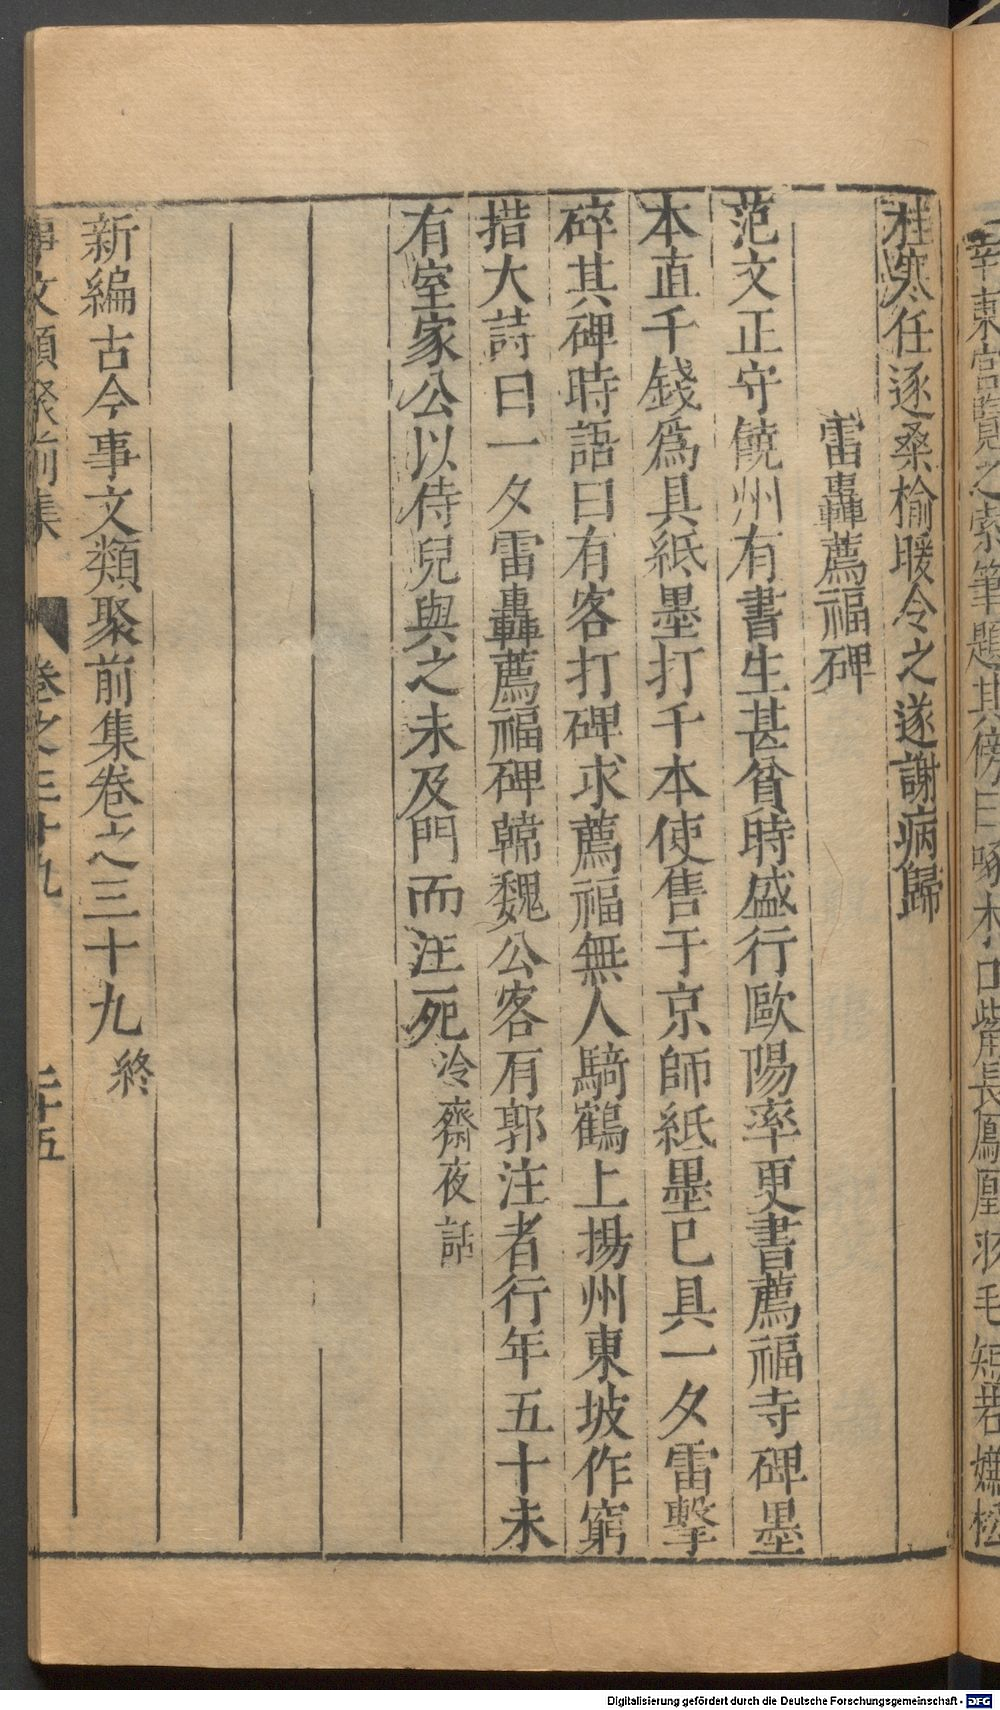 幸東嘗覽之索筆題其傍曰啄木口觜長鳳凰羽毛短若嫌松
桂寒任逐桑榆暖令之遂謝病歸
雷轟薦福碑
范文正守饒州有書生甚貧時盛行歐陽率更書薦福寺碑墨
本直千錢爲具紙墨打千本使售于京師紙墨已具一夕雷擊
碎其碑時語曰有客打碑求薦福無人騎鶴上揚州東坡作窮
措大詩曰一夕雷轟薦福碑韓魏公客有郭注者行年五十未
有室家公以侍兒與之未及門而注死冷齋夜話
新編古今事文類聚前集卷之三十九終
事文類聚前集 卷之三十九 二十五
Digitalisierung gefördert durch die Deutsche Forschungsgemeinschaft - DFG